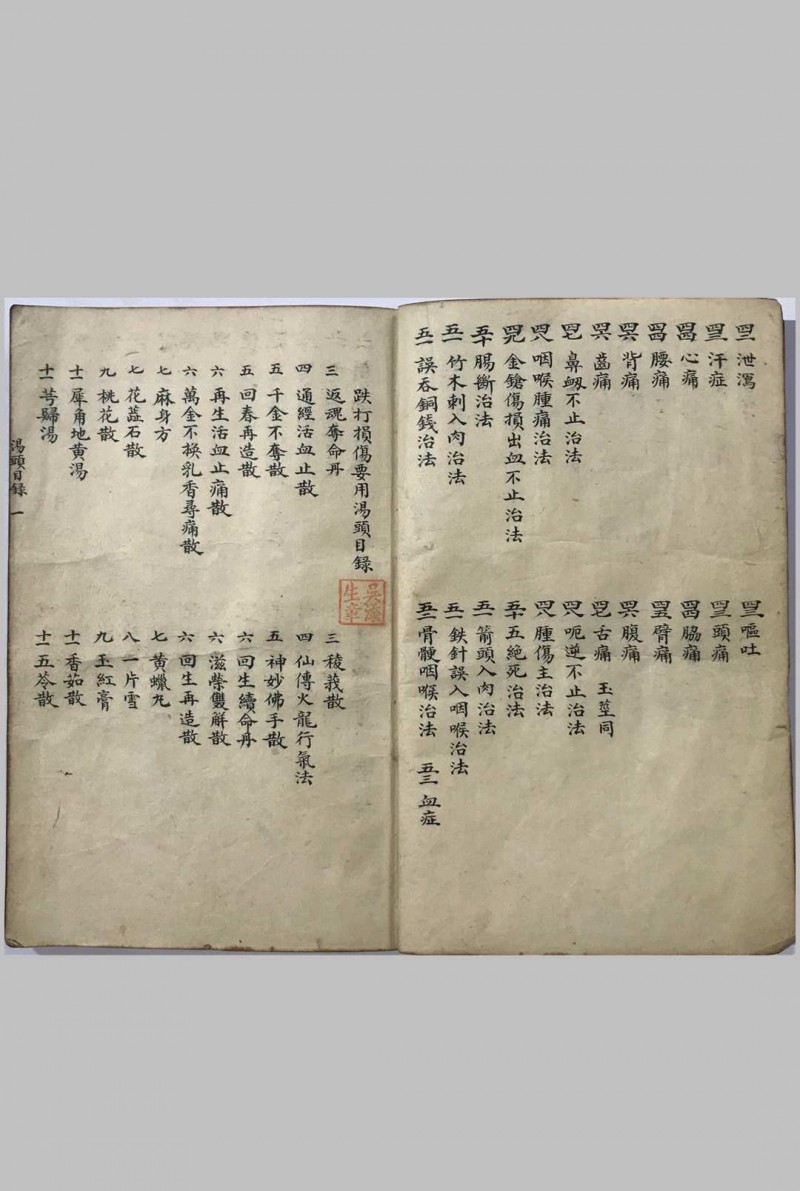 四二 泄瀉 四三 嘔吐
四三 汗症 四三 頭痛
四四 心痛 四四 脇痛
四四 腰痛 四五 臂痛
四五 背痛 四六 腹痛
四六 齒痛 四七 舌痛 玉莖同
四七 鼻衂不止治法 四八 呃逆不止治法
四八 咽喉腫痛治法 四八 腫傷主治法
四九 金鎗傷損出血不止治法 五十 五絕死治法
五十 腸斷治法 五一 箭頭入肉治法
五一 竹木刺入肉治法 五一 鉄針誤入咽喉治法
五一 誤吞銅錢治法 五二 骨骾咽喉治法 五三 血症
跌打損傷要用湯頭目錄
三 返魂奪命丹 三 稜莪散
四 通經活血止散 四 仙傳火龍行氣法
五 千金不奪散 五 神妙佛手散
五 回春再造散 六 回生續命丹
六 再生活血止痛散 六 滋榮雙解散
六 萬金不換乳香尋痛散 六 回生再造散
七 麻身方 七 黃蠟丸
七 花蕋石散 八 一片雪
九 桃花散 九 玉紅膏
十一 犀角地黃湯 十一 香茹散
十一 芎歸湯 十一 五苓散
湯頭目錄 一